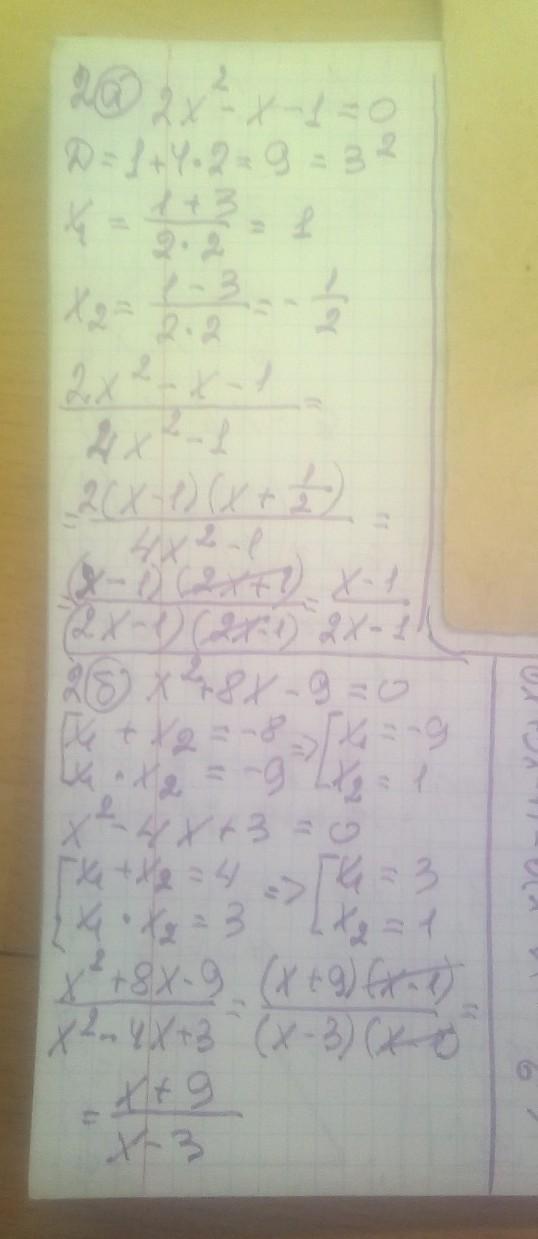 2(а) 2x² - x - 1 = 0
D = 1 + 4·2 = 9 = 3²
x₁ = (1 + 3)/(2·2) = 1
x₂ = (1 - 3)/(2·2) = - 1/2
(2x² - x - 1)/(4x² - 1) =
= (2(x - 1)(x + 1/2))/(4x² - 1) =
= ((x - 1)(2x + 1))/((2x - 1)(2x + 1)) = (x - 1)/(2x - 1)
2(б) x² + 8x - 9 = 0
[x₁ + x₂ = -8 => [x₁ = -9
[x₁ · x₂ = -9 [x₂ = 1
x² - 4x + 3 = 0
[x₁ + x₂ = 4 => [x₁ = 3
[x₁ · x₂ = 3 [x₂ = 1
(x² + 8x - 9)/(x² - 4x + 3) = ((x + 9)(x - 1))/((x - 3)(x - 1)) =
= (x + 9)/(x - 3)